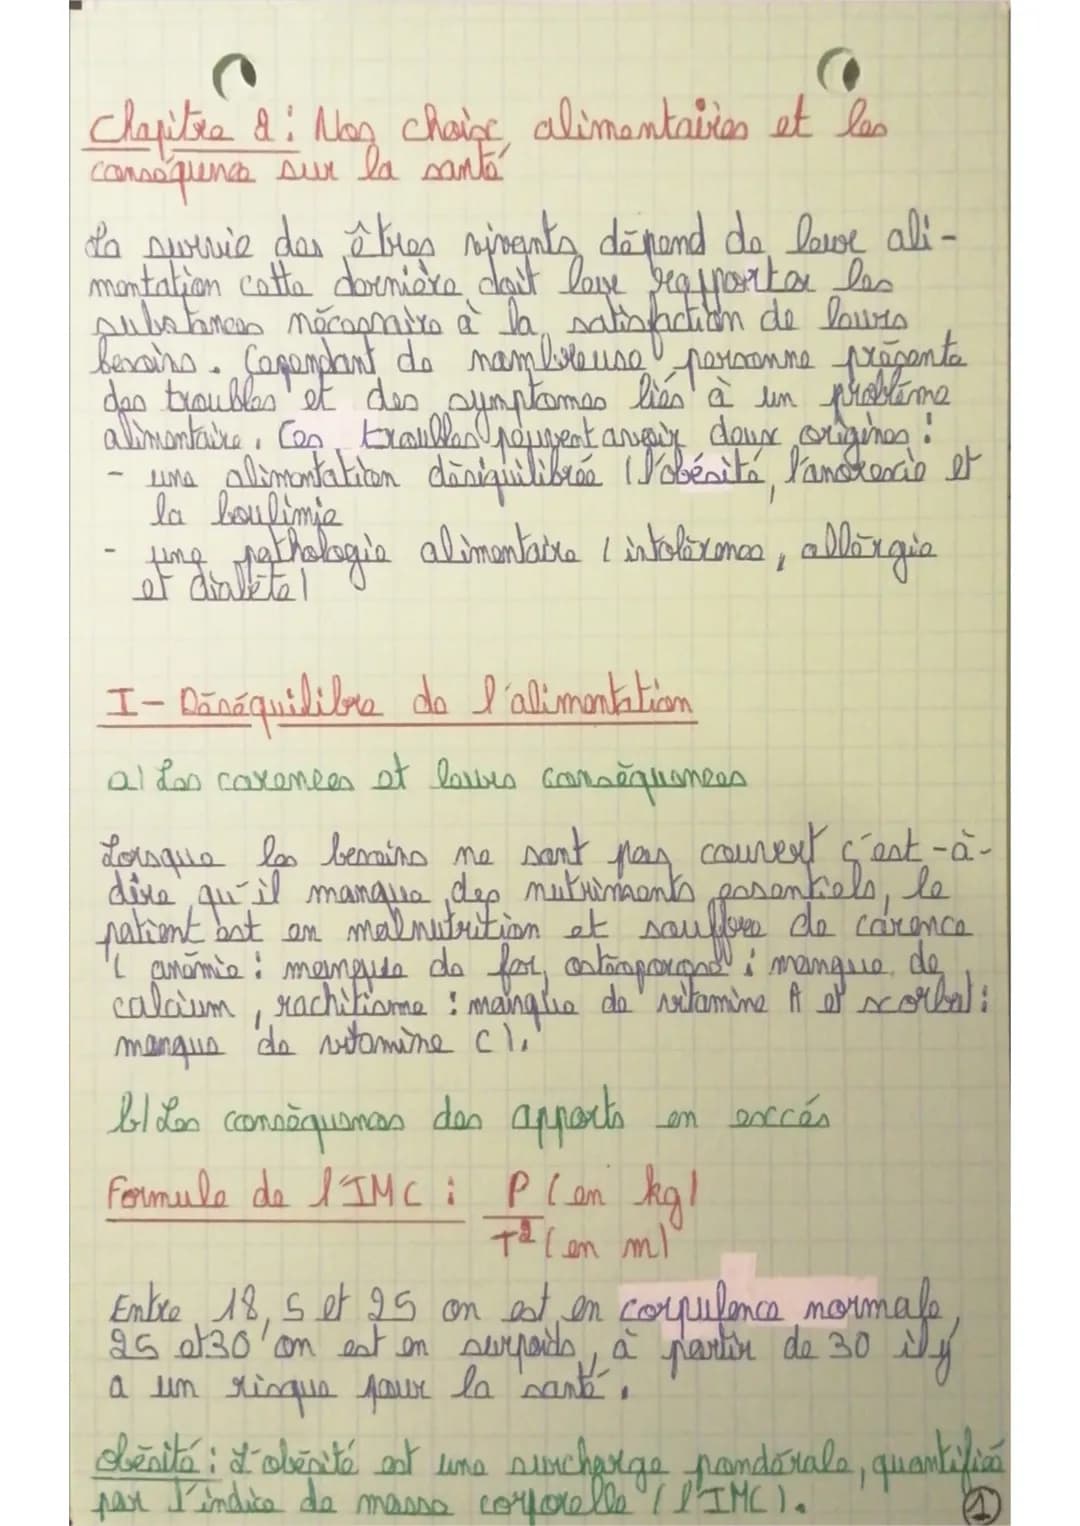 Chapitre 2 : Nos choix alimentaires et les
conséquence sur la santé
La survie des êtres vivants dépend de leur ali-
mentation cette dernière doit leur rapporter les
substances nécessaire à la satisfaction de leurs
besoins. Cependant de nombreuse personne présente
des troubles et des symptomes liés à un problème
alimentaire. Ces troubles peuvent avoir deux origines :
- une alimentation déséquilibrée (l'obésité, l'anorexie et
la boulimie
- une pathologie alimentaire (intolérence, allérgie
et diabète)
I- Déséquilibre de l'alimentation
a) Les carences et leurs conséquences
Lorsque les besoins ne sont pas couvert c'est-à-
dire qu'il manque des nutriments essentiels, le
patient est en malnutrition et souffre de carence
( anémie : manque de fer, : manque de
calcium, rachitisme : manque de vitamine A et scorbut :
manque de vitamine C).
b) Les conséquences des apports en excés
Formule de l'IMC : P (en kg)
T² (en m)
Entre 18,5 et 25 on est en corpulence normale,
25 et 30 on est en surpoids, à partir de 30 il y
a un risque pour la santé.
obésité : L'obésité est une surcharge pondérale, quantifiée
par l'indice de masse corporelle (l'IMC).
1